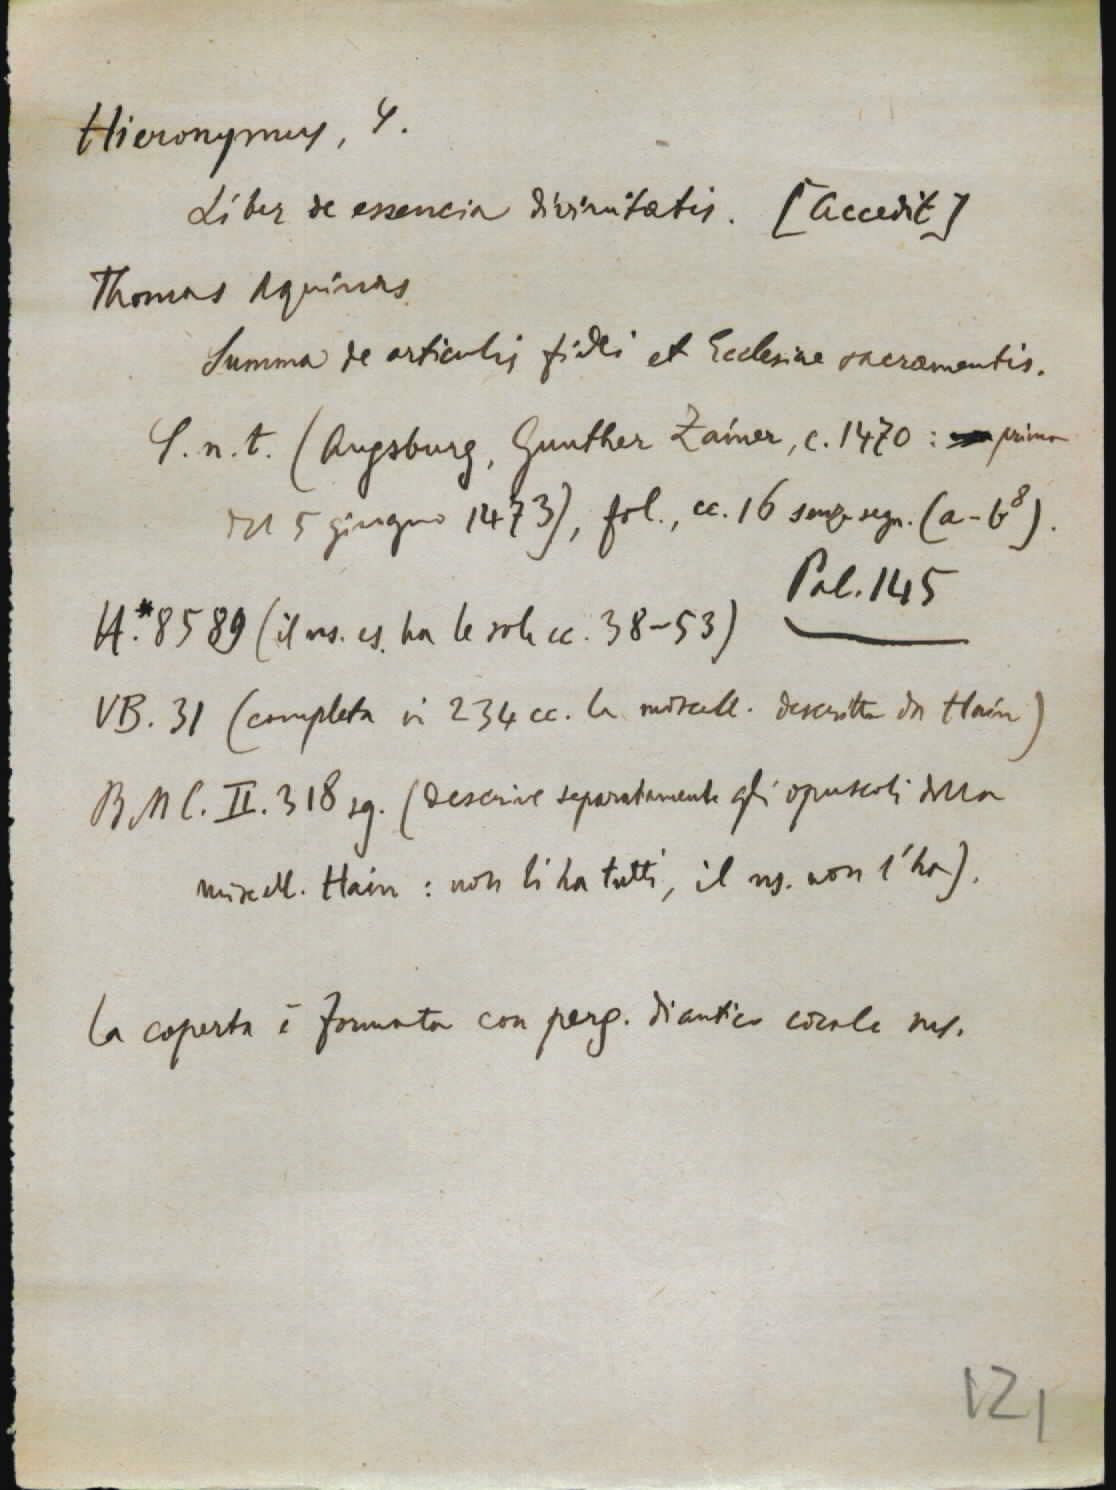 Hieronymus, S.
Liber de essencia divinitatis. [Accedit]
Thomas Aquinas
Summa de articulis fidei et Ecclesiae sacramentis.
S. n. t. (Augsburg, Gunther Zainer, c. 1470 : prima
del 5 giugno 1473), fol., cc. 16 senza segn. (a-b⁸).
Pal. 145
H.*8589 (il ns. es. ha le sole cc. 38-53)
VB. 31 (completa in 234 cc. la miscell. descritta da Hain)
BMC. II. 318 sg. (descrive separatamente gli opuscoli della
miscell. Hain : non li ha tutti, il ns. non l'ha).
La coperta è formata con perg. di antico corale ms.
121